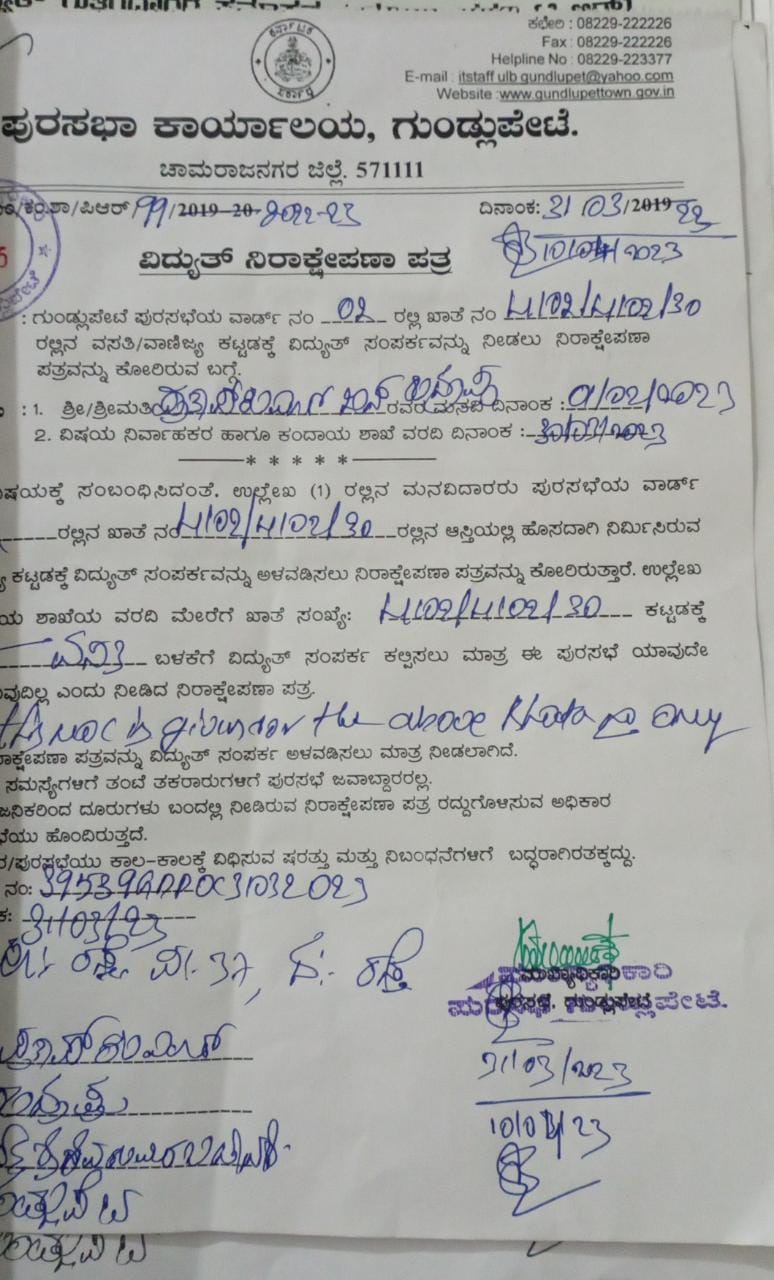 ಕಛೇರಿ : 08229-222226
Fax : 08229-222226
Helpline No : 08229-223377
E-mail : itstaff ulb gundlupet@yahoo.com
Website :www.gundlupettown.gov.in
ಪುರಸಭಾ ಕಾರ್ಯಾಲಯ, ಗುಂಡ್ಲುಪೇಟೆ.
ಚಾಮರಾಜನಗರ ಜಿಲ್ಲೆ. 571111
/ಕಂ.ಶಾ/ಪಿಆರ್ 99/2019-20-2022-23 ದಿನಾಂಕ: 31/03/2019 23
10/04/2023
ವಿದ್ಯುತ್ ನಿರಾಕ್ಷೇಪಣಾ ಪತ್ರ
: ಗುಂಡ್ಲುಪೇಟೆ ಪುರಸಭೆಯ ವಾರ್ಡ್ ನಂ 02 ರಲ್ಲಿ ಖಾತೆ ನಂ 4102/4102/30
ರಲ್ಲಿನ ವಸತಿ/ವಾಣಿಜ್ಯ ಕಟ್ಟಡಕ್ಕೆ ವಿದ್ಯುತ್ ಸಂಪರ್ಕವನ್ನು ನೀಡಲು ನಿರಾಕ್ಷೇಪಣಾ
ಪತ್ರವನ್ನು ಕೋರಿರುವ ಬಗ್ಗೆ.
: 1. ಶ್ರೀ/ಶ್ರೀಮತಿ ರವರ ಮನವಿ ದಿನಾಂಕ : 01/02/2023
2. ವಿಷಯ ನಿರ್ವಾಹಕರ ಹಾಗೂ ಕಂದಾಯ ಶಾಖೆ ವರದಿ ದಿನಾಂಕ : 30/03/2023
*****
ಷಯಕ್ಕೆ ಸಂಬಂಧಿಸಿದಂತೆ. ಉಲ್ಲೇಖ (1) ರಲ್ಲಿನ ಮನವಿದಾರರು ಪುರಸಭೆಯ ವಾರ್ಡ್
ರಲ್ಲಿನ ಖಾತೆ ನಂ 4102/4102/30 ರಲ್ಲಿನ ಆಸ್ತಿಯಲ್ಲಿ ಹೊಸದಾಗಿ ನಿರ್ಮಿಸಿರುವ
ಕಟ್ಟಡಕ್ಕೆ ವಿದ್ಯುತ್ ಸಂಪರ್ಕವನ್ನು ಅಳವಡಿಸಲು ನಿರಾಕ್ಷೇಪಣಾ ಪತ್ರವನ್ನು ಕೋರಿರುತ್ತಾರೆ. ಉಲ್ಲೇಖ
ಯ ಶಾಖೆಯ ವರದಿ ಮೇರೆಗೆ ಖಾತೆ ಸಂಖ್ಯೆ: 4102/4102/30 ಕಟ್ಟಡಕ್ಕೆ
ವಸತಿ ಬಳಕೆಗೆ ವಿದ್ಯುತ್ ಸಂಪರ್ಕ ಕಲ್ಪಿಸಲು ಮಾತ್ರ ಈ ಪುರಸಭೆ ಯಾವುದೇ
ವುದಿಲ್ಲ ಎಂದು ನೀಡಿದ ನಿರಾಕ್ಷೇಪಣಾ ಪತ್ರ.
this NOC is given for the above Khata no only
ರಾಕ್ಷೇಪಣಾ ಪತ್ರವನ್ನು ವಿದ್ಯುತ್ ಸಂಪರ್ಕ ಅಳವಡಿಸಲು ಮಾತ್ರ ನೀಡಲಾಗಿದೆ.
ಸಮಸ್ಯೆಗಳಿಗೆ ತಂಟೆ ತಕರಾರುಗಳಿಗೆ ಪುರಸಭೆ ಜವಾಬ್ದಾರರಲ್ಲ.
ಜನಿಕರಿಂದ ದೂರುಗಳು ಬಂದಲ್ಲಿ ನೀಡಿರುವ ನಿರಾಕ್ಷೇಪಣಾ ಪತ್ರ ರದ್ದುಗೊಳಿಸುವ ಅಧಿಕಾರ
ಭೆಯು ಹೊಂದಿರುತ್ತದೆ.
/ಪುರಸಭೆಯು ಕಾಲ-ಕಾಲಕ್ಕೆ ವಿಧಿಸುವ ಷರತ್ತು ಮತ್ತು ನಿಬಂಧನೆಗಳಿಗೆ ಬದ್ಧರಾಗಿರತಕ್ಕದ್ದು.
ನಂ:
ಕ: 31/03/23
ಮುಖ್ಯಾಧಿಕಾರಿ
ಪುರಸಭೆ, ಗುಂಡ್ಲುಪೇಟೆ
31/03/2023
10/04/23